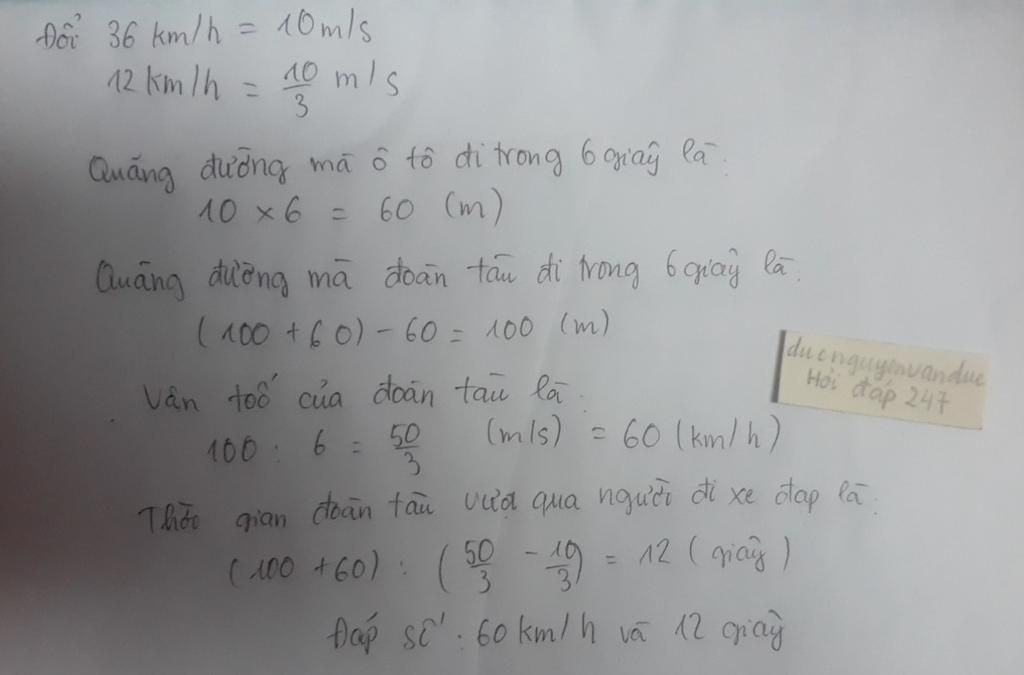 Đổi 36 km/h = 10 m/s
12 km/h = 10/3 m/s
Quãng đường mà ô tô đi trong 6 giây là:
10 × 6 = 60 (m)
Quãng đường mà đoàn tàu đi trong 6 giây là:
(100 + 60) - 60 = 100 (m)
Vân tốc của đoàn tàu là:
100 : 6 = 50/3 (m/s) = 60 (km/h)
Thời gian đoàn tàu vượt qua người đi xe đạp là:
(100 + 60) : (50/3 - 10/3) = 12 (giây)
Đáp số : 60 km/h và 12 giây
ducnguyenvanduc
Hỏi đáp 247